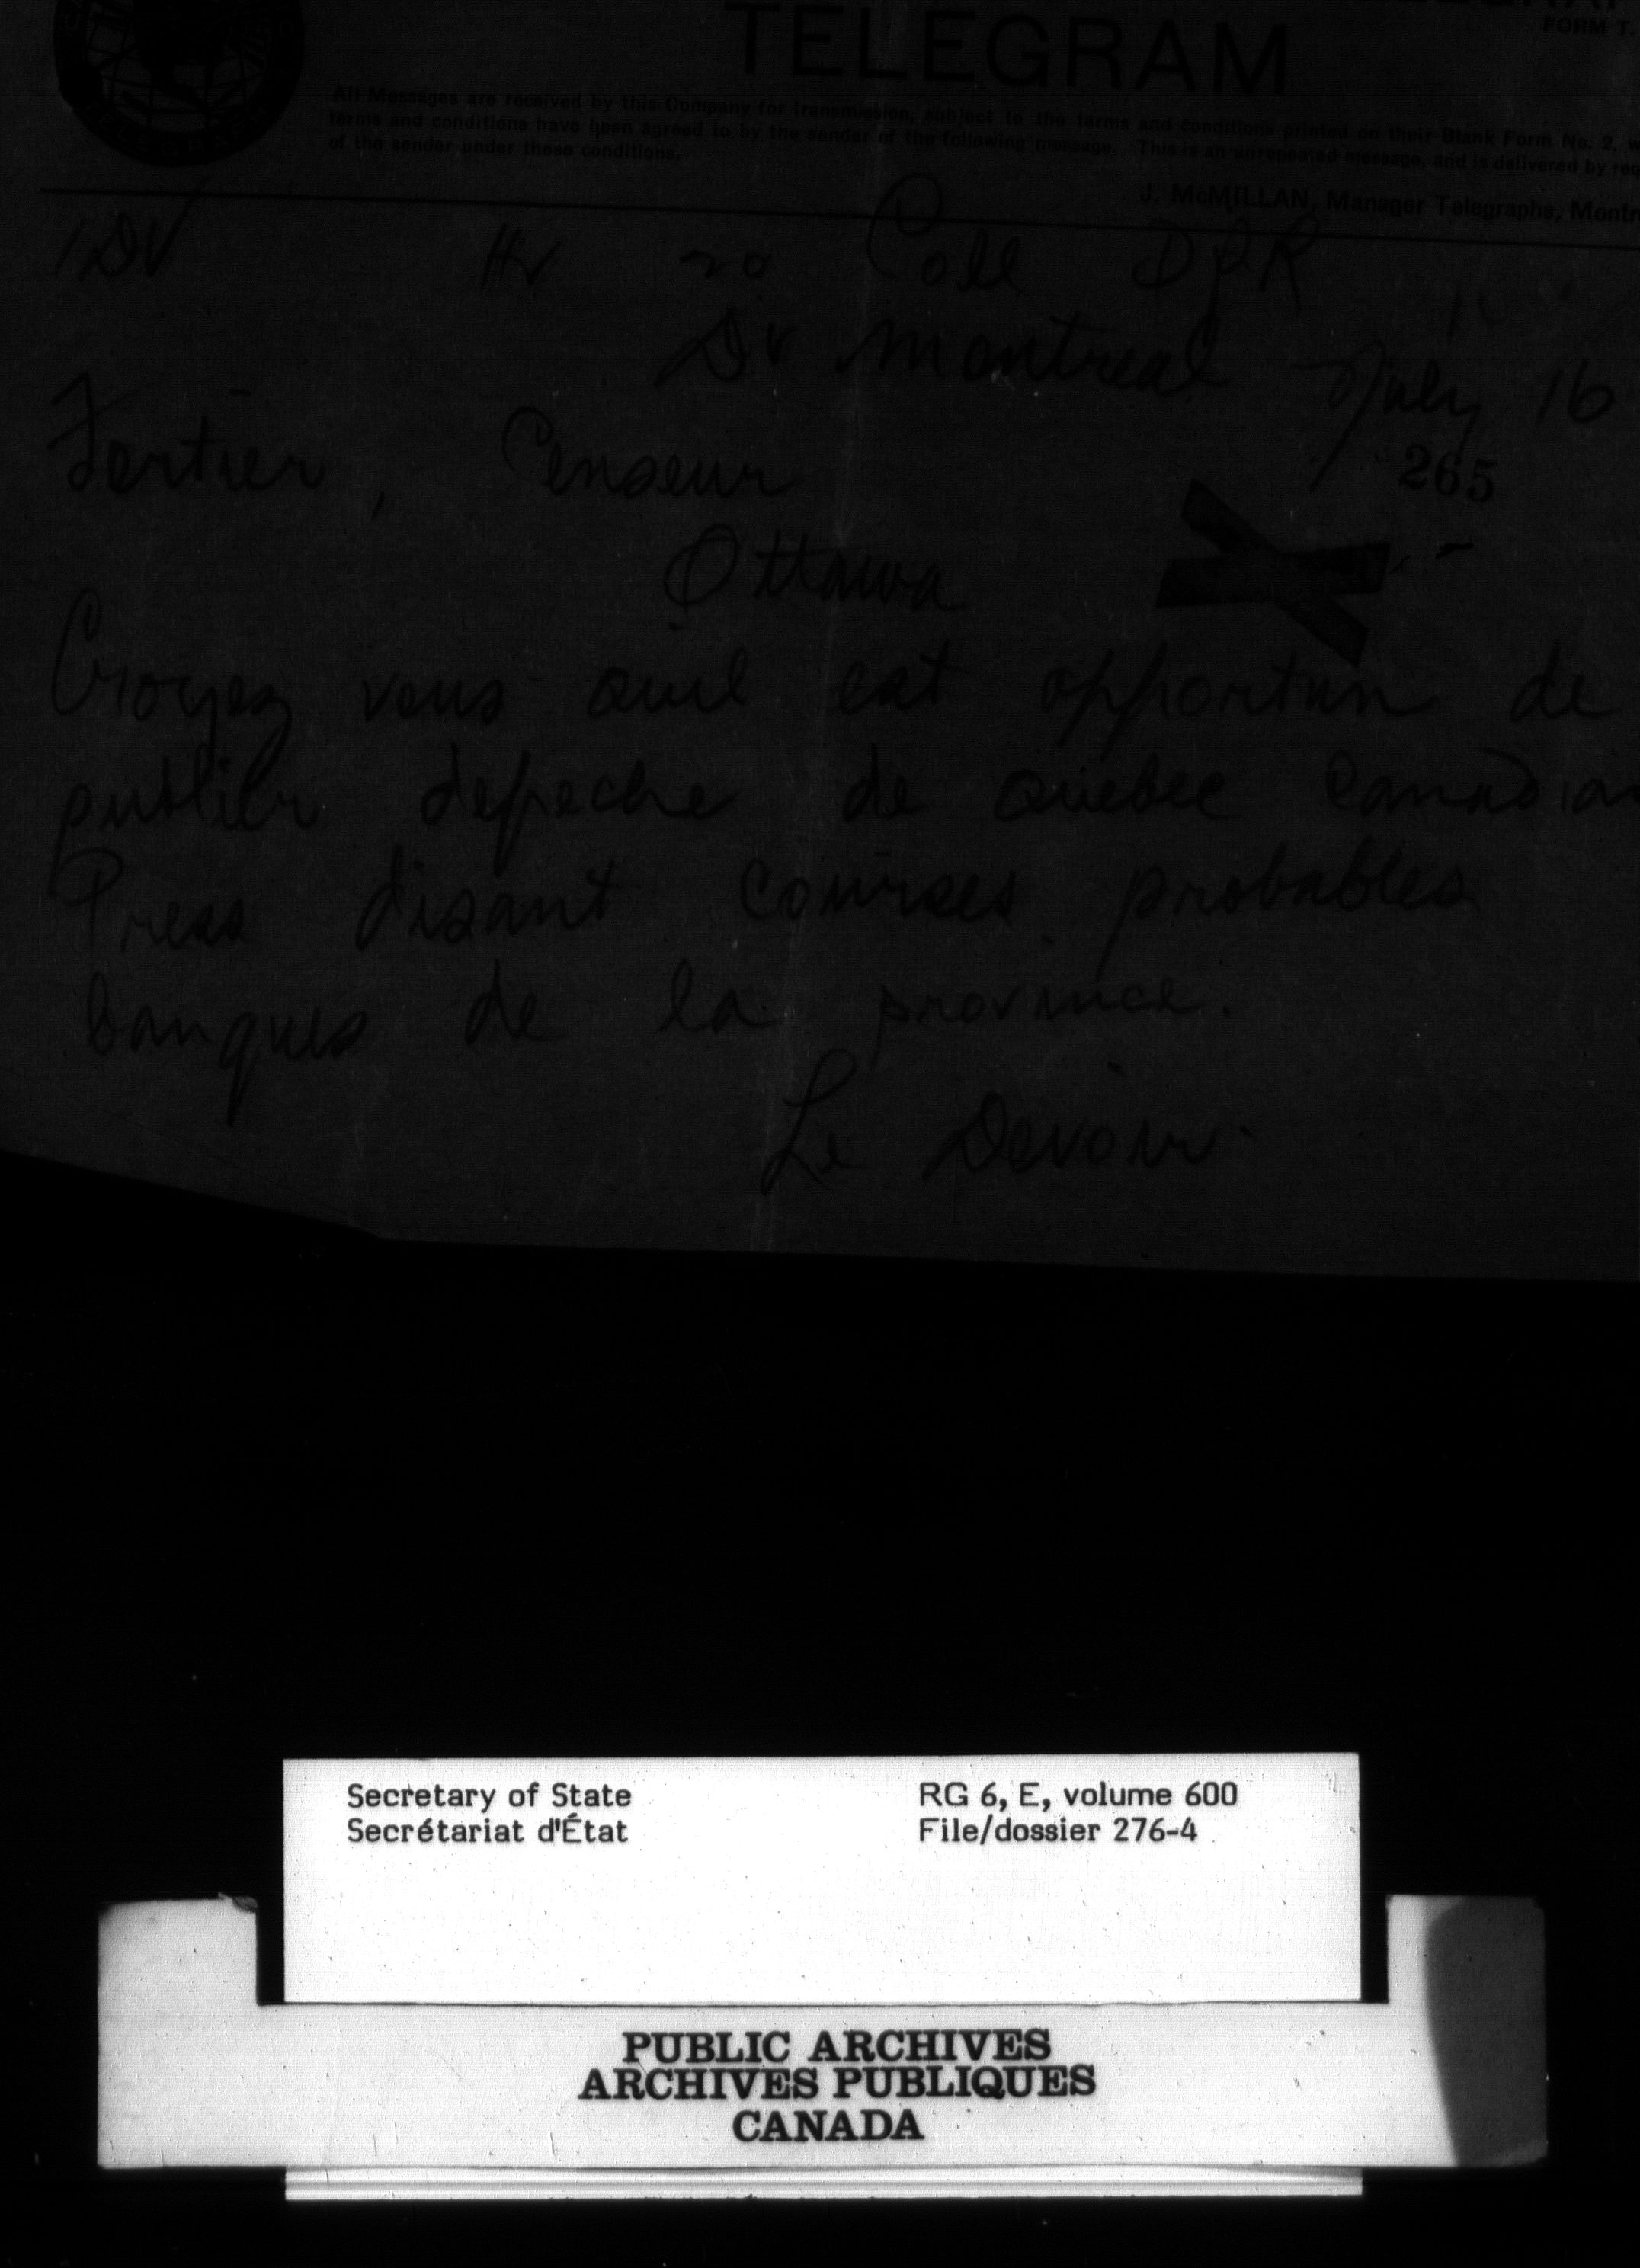 TELEGRAM
FORM T.
All Messages are received by this Company for transmission, subject to the terms and conditions printed on their Blank Form No. 2, w
terms and conditions have been agreed to by the sender of the following message. This is an unrepeated message, and is delivered by req
of the sender under these conditions.
J. McMILLAN, Manager Telegraphs, Montr
1DV Hv 20 Coll DPR
Dv Montreal July 16
Fortier, Censeur
265
Ottawa
Croyez vous quil est opportun de
publier depeche de Quebec Canadian
Press disant courses probables
banques de la province.
Le Devoir
Secretary of State
Secrétariat d'État
RG 6, E, volume 600
File/dossier 276-4
PUBLIC ARCHIVES
ARCHIVES PUBLIQUES
CANADA